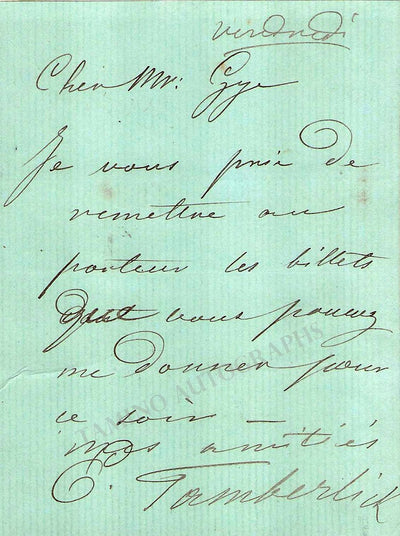 vendredi
Cher Mr: Gye
Je vous prie de
remettre au
porteur les billets
que vous pouvez
me donner pour
ce soir —
mes amitiés
E. Tamberlick
TAMINO AUTOGRAPHS